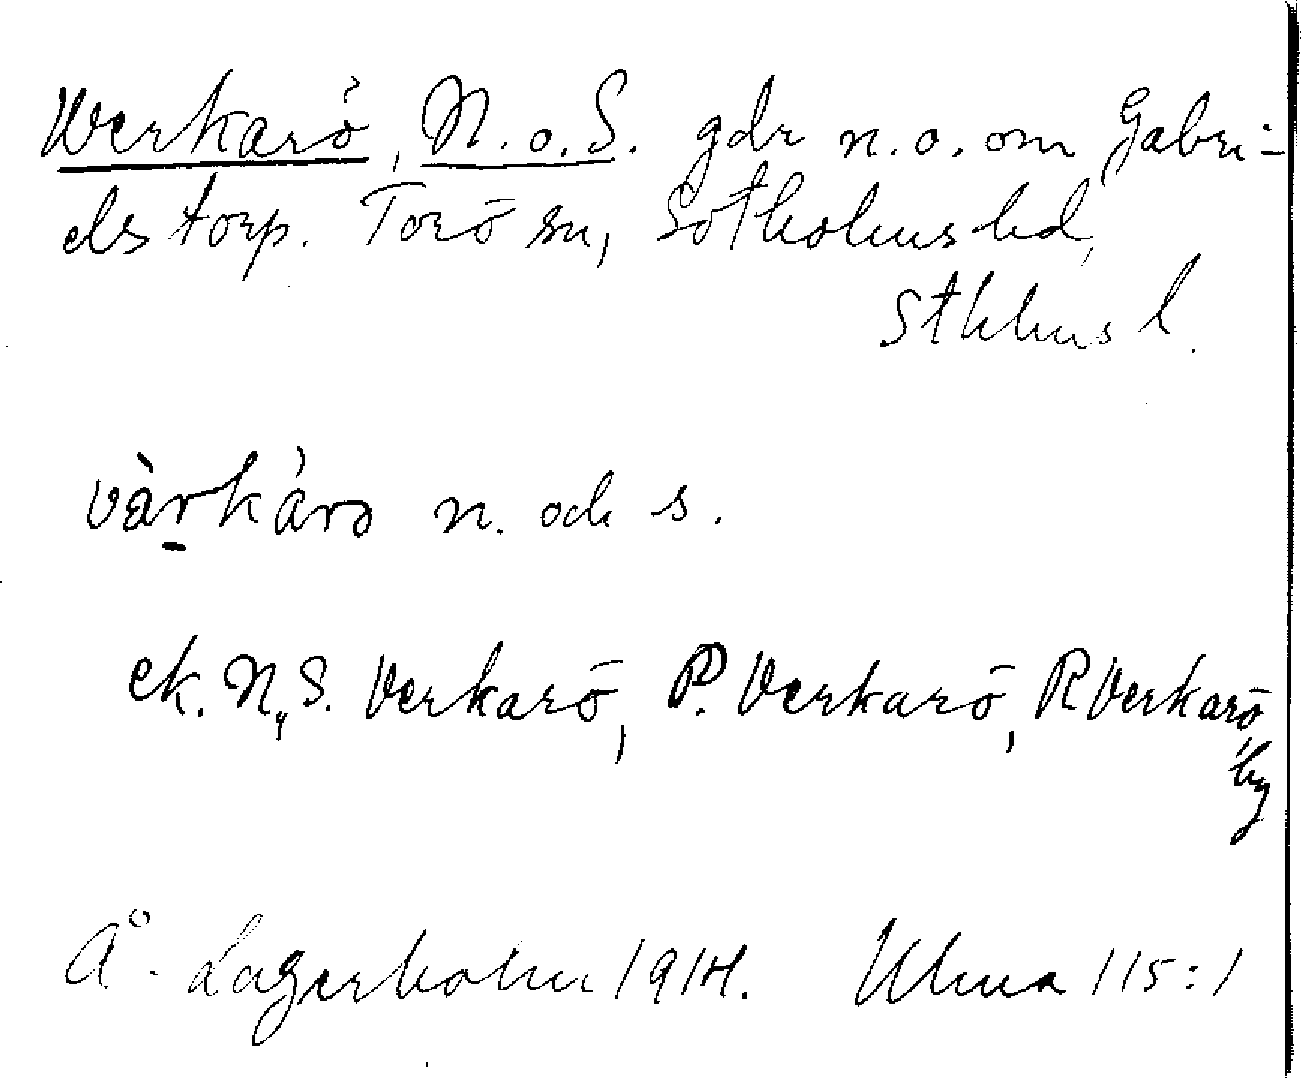 Verkarö, N. o. S. gdr n.o. om Gabri-
elstorp. Torö sn, Sotholms hd,
Sthlms l.
värkárö n. och s.
ek. N., S. Verkarö, P. Verkarö, R Verkarö,
by
Å. Lagerholm 1914. Ulma 115:1